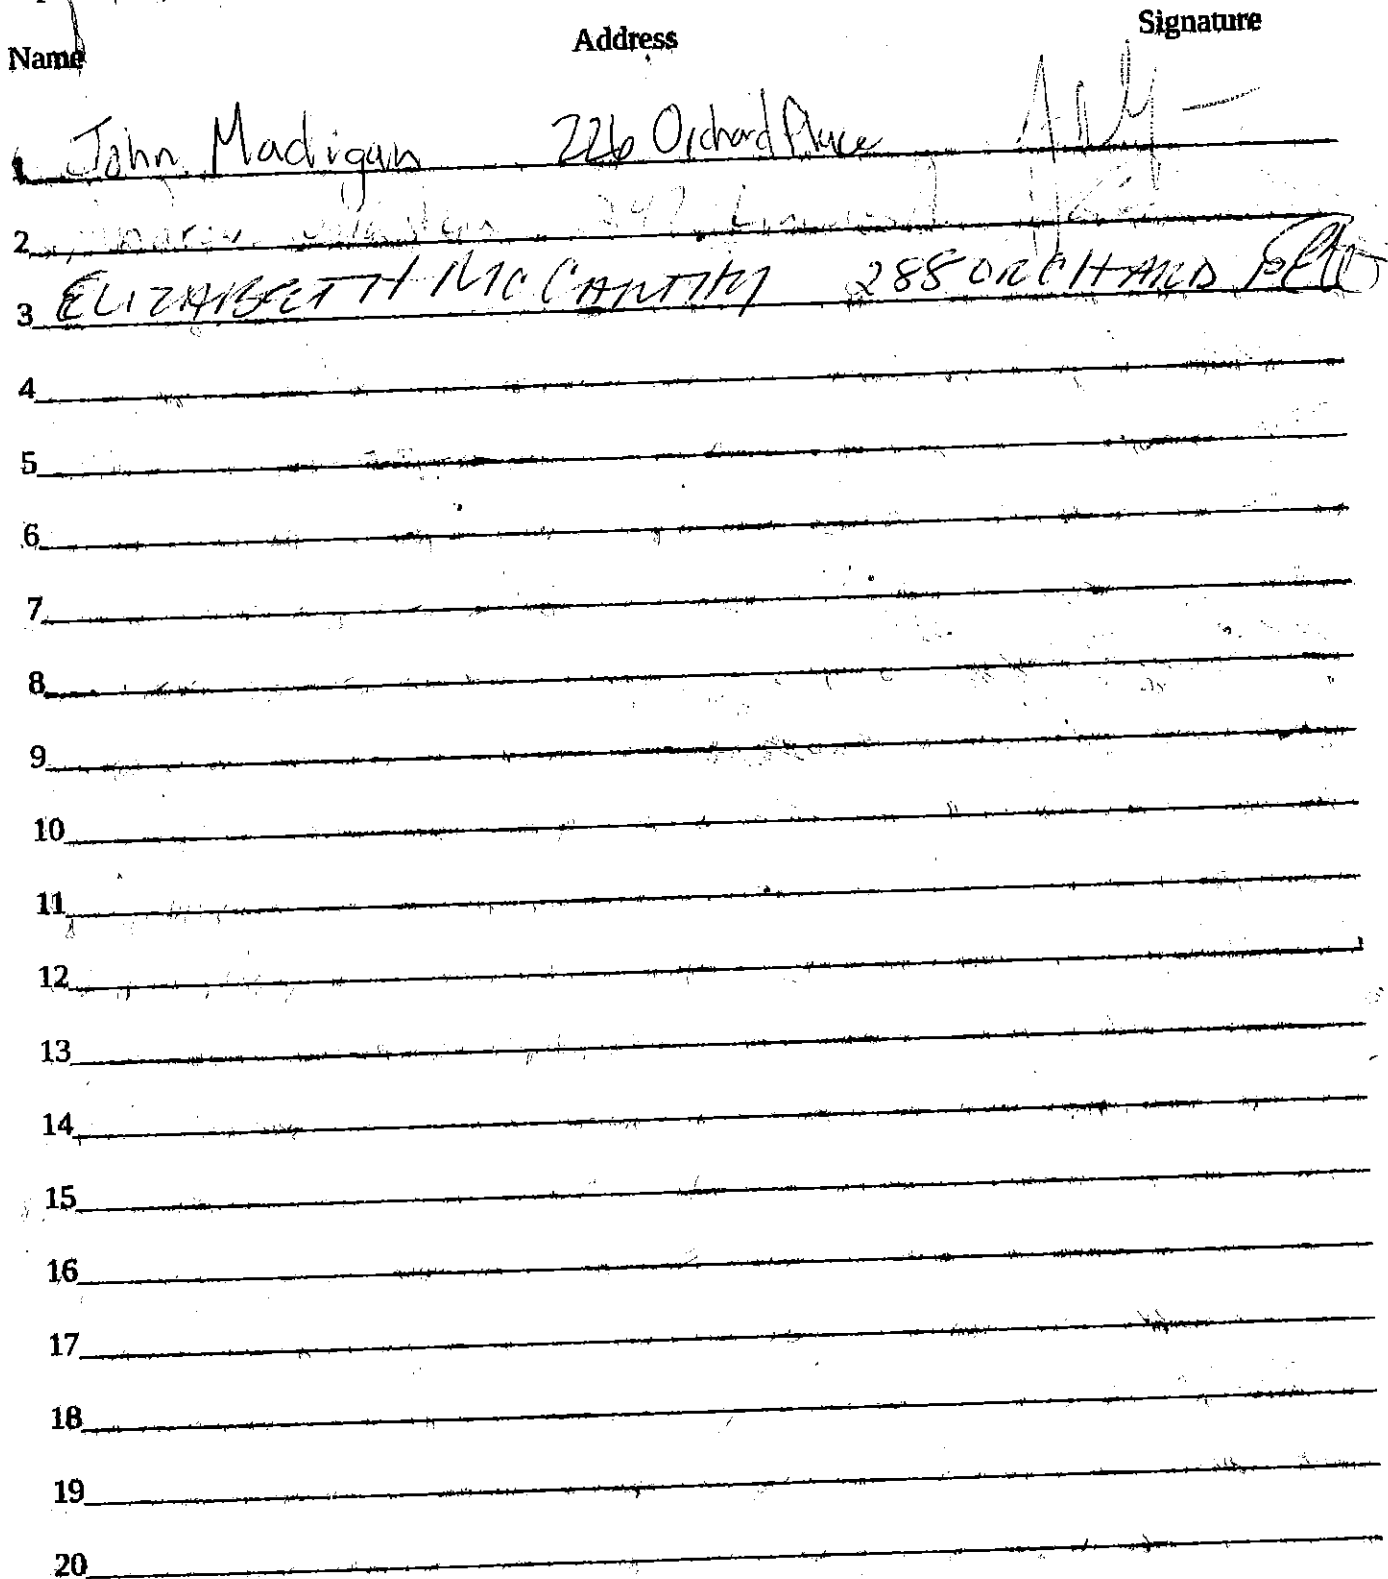 Name Address Signature
1 John Madigan 226 Orchard Place
2
3 ELIZABETH MCCARTHY 288 ORCHARD
4
5
6
7
8
9
10
11
12
13
14
15
16
17
18
19
20